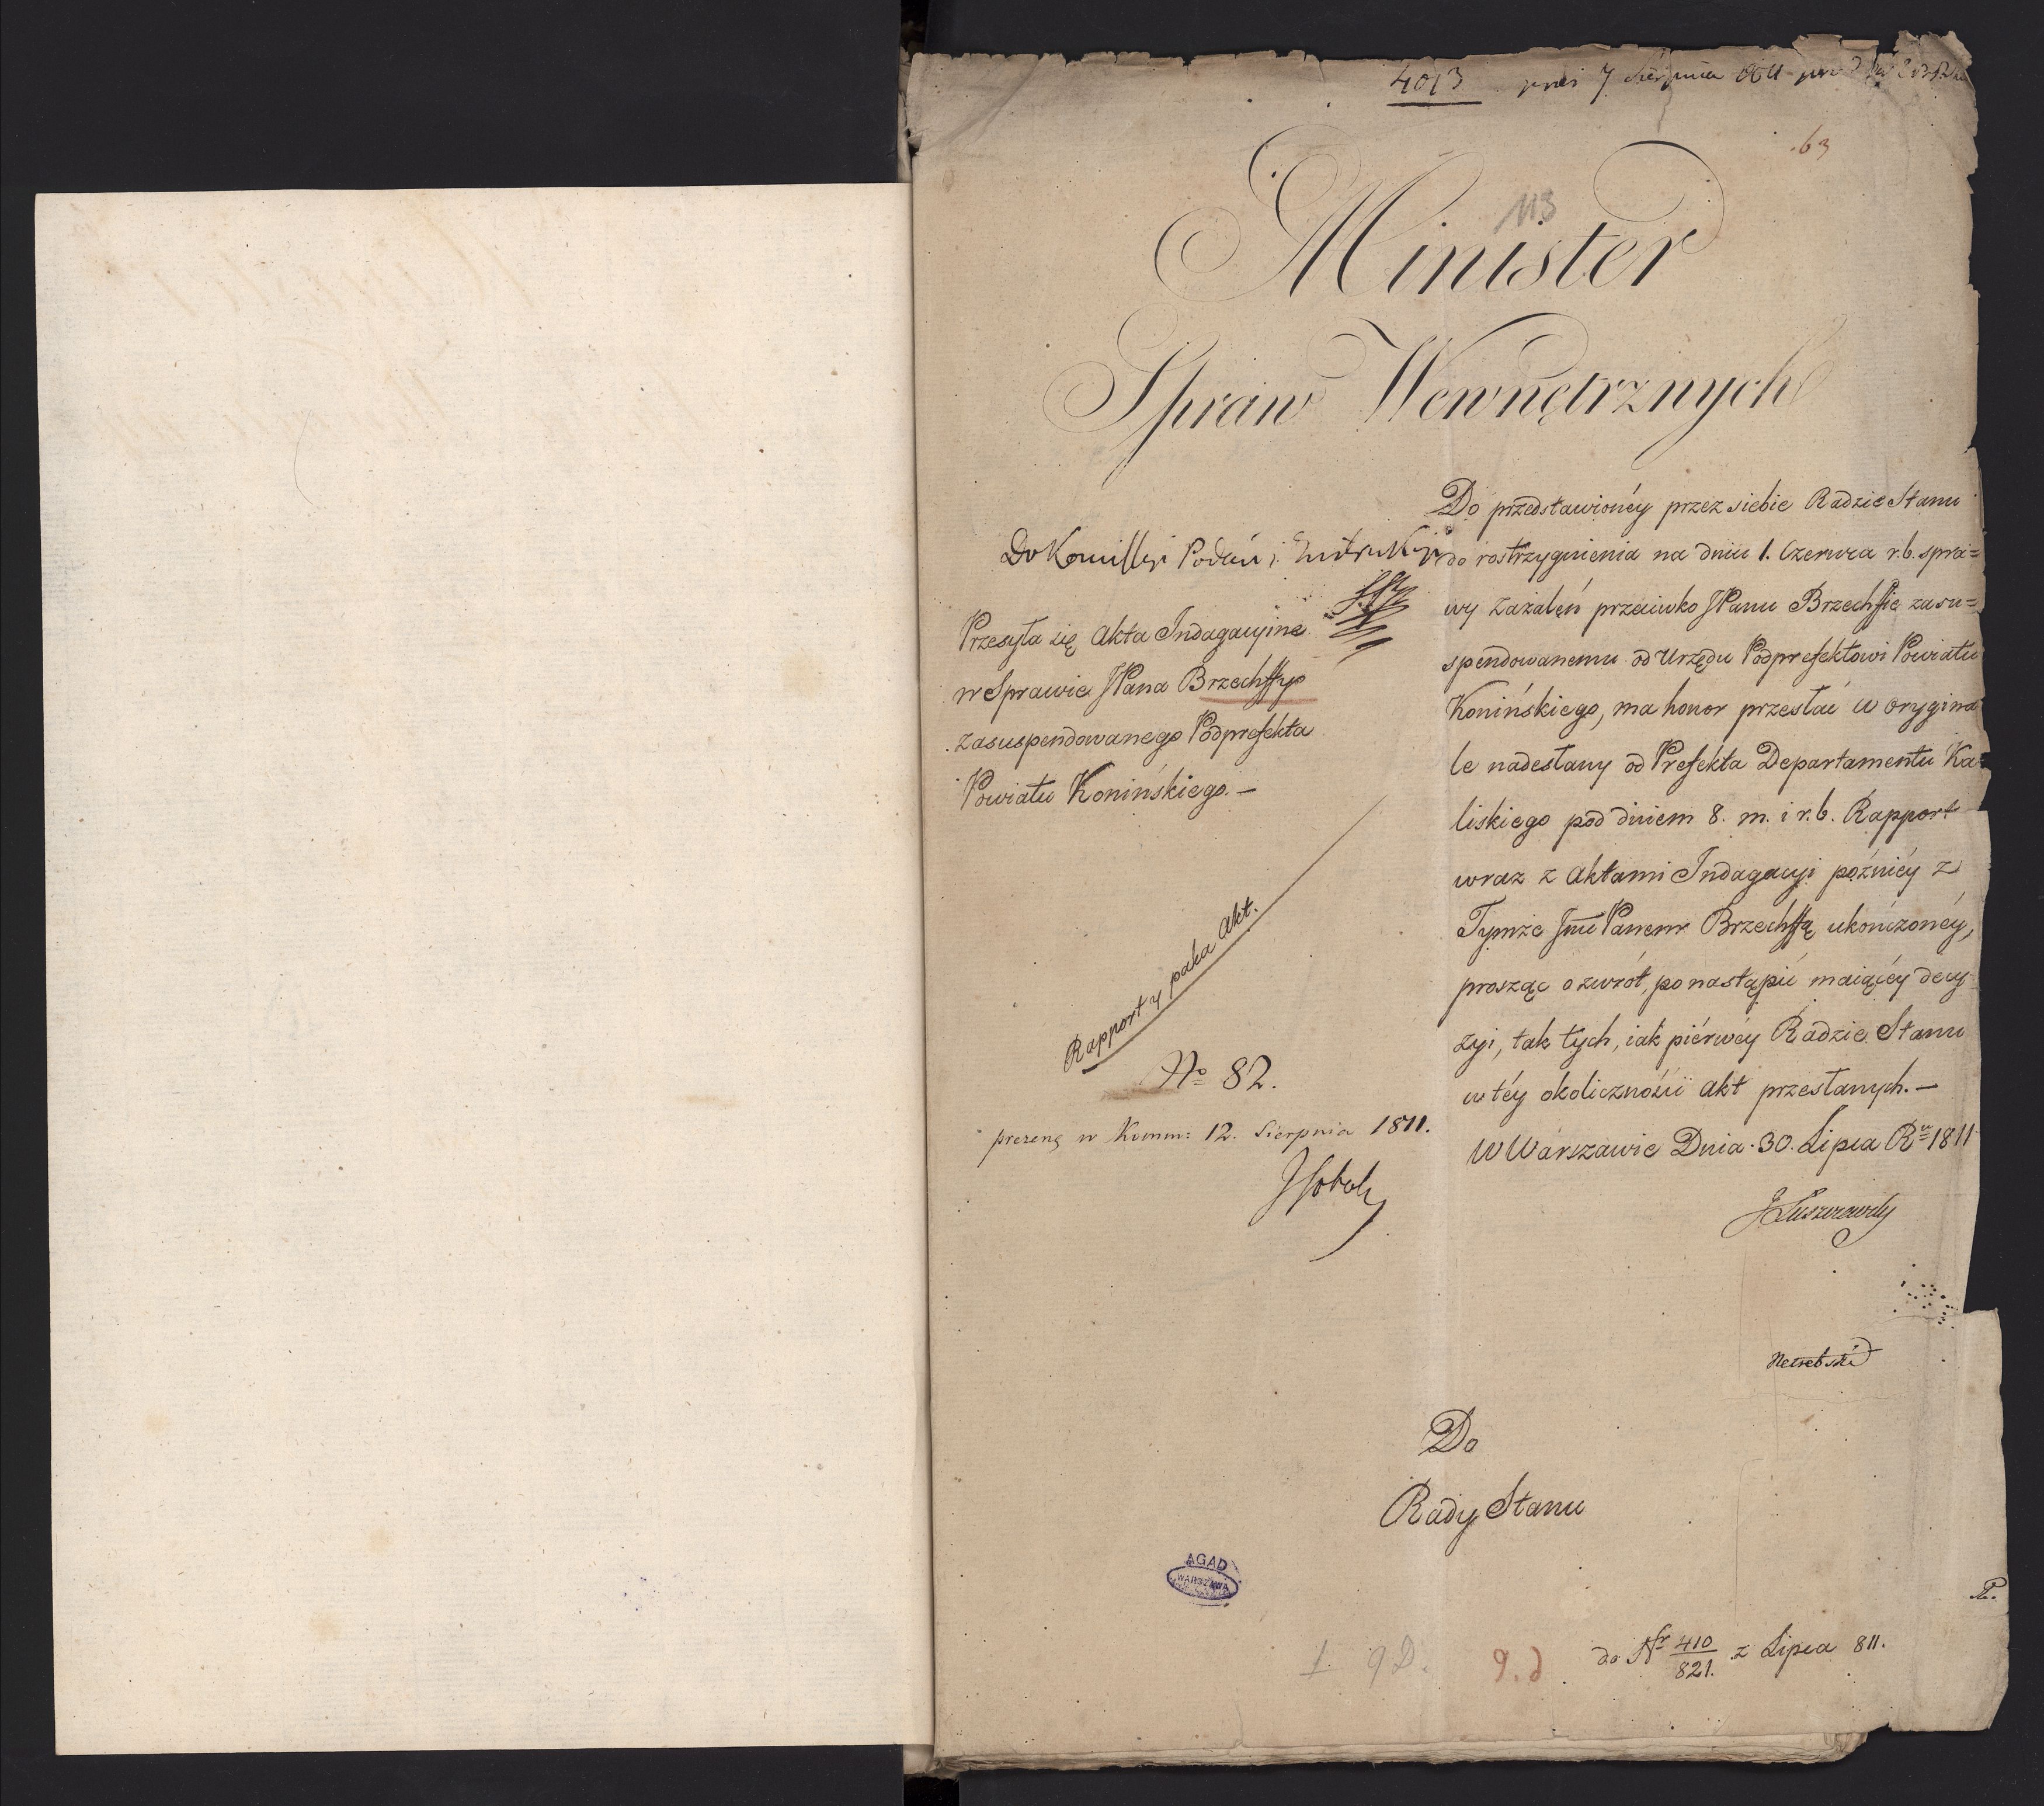 4013 7 Sierpnia
63
113
Minister
Spraw Wewnętrznych
Do Kommissyi Podań i Instrukcyi
Przesyła się Akta Indagacyine
w Sprawie JPana Brzechffy
zasuspendowanego Podprefekta
Powiatu Konińskiego. —
Rapport y paka Akt.
No 82.
prezent w Komm: 12. Sierpnia 1811.
Do przedstawionéy przez siebie Radzie Stanu
do rostrzygnienia na dniu 1. Czerwca r. b. spra=
wy zażaleń przeciwko JPanu Brzechffie zasu=
spendowanemu od Urzędu Podprefektowi Powiatu
Konińskiego, ma honor przesłać w orygina
le nadesłany od Prefekta Departamentu Ka=
liskiego pod dniem 8. m. i r. b. Rapport
wraz z Aktami Indagacyi późniéy z
Tymże Jmć Panem Brzechffą ukończonéy,
prosząc o zwrót, po nastąpić maiącéy decy
zyi, tak tych, iak piérwéy Radzie Stanu
w téy okoliczności Akt przesłanych. —
W Warszawie Dnia 30. Lipca Ru 1811
J Łuszczewsky
Do
Rady Stanu
AGAD
WARSZAWA
1. 9D. 9. d
do Nr 410/821. z Lipca 811.